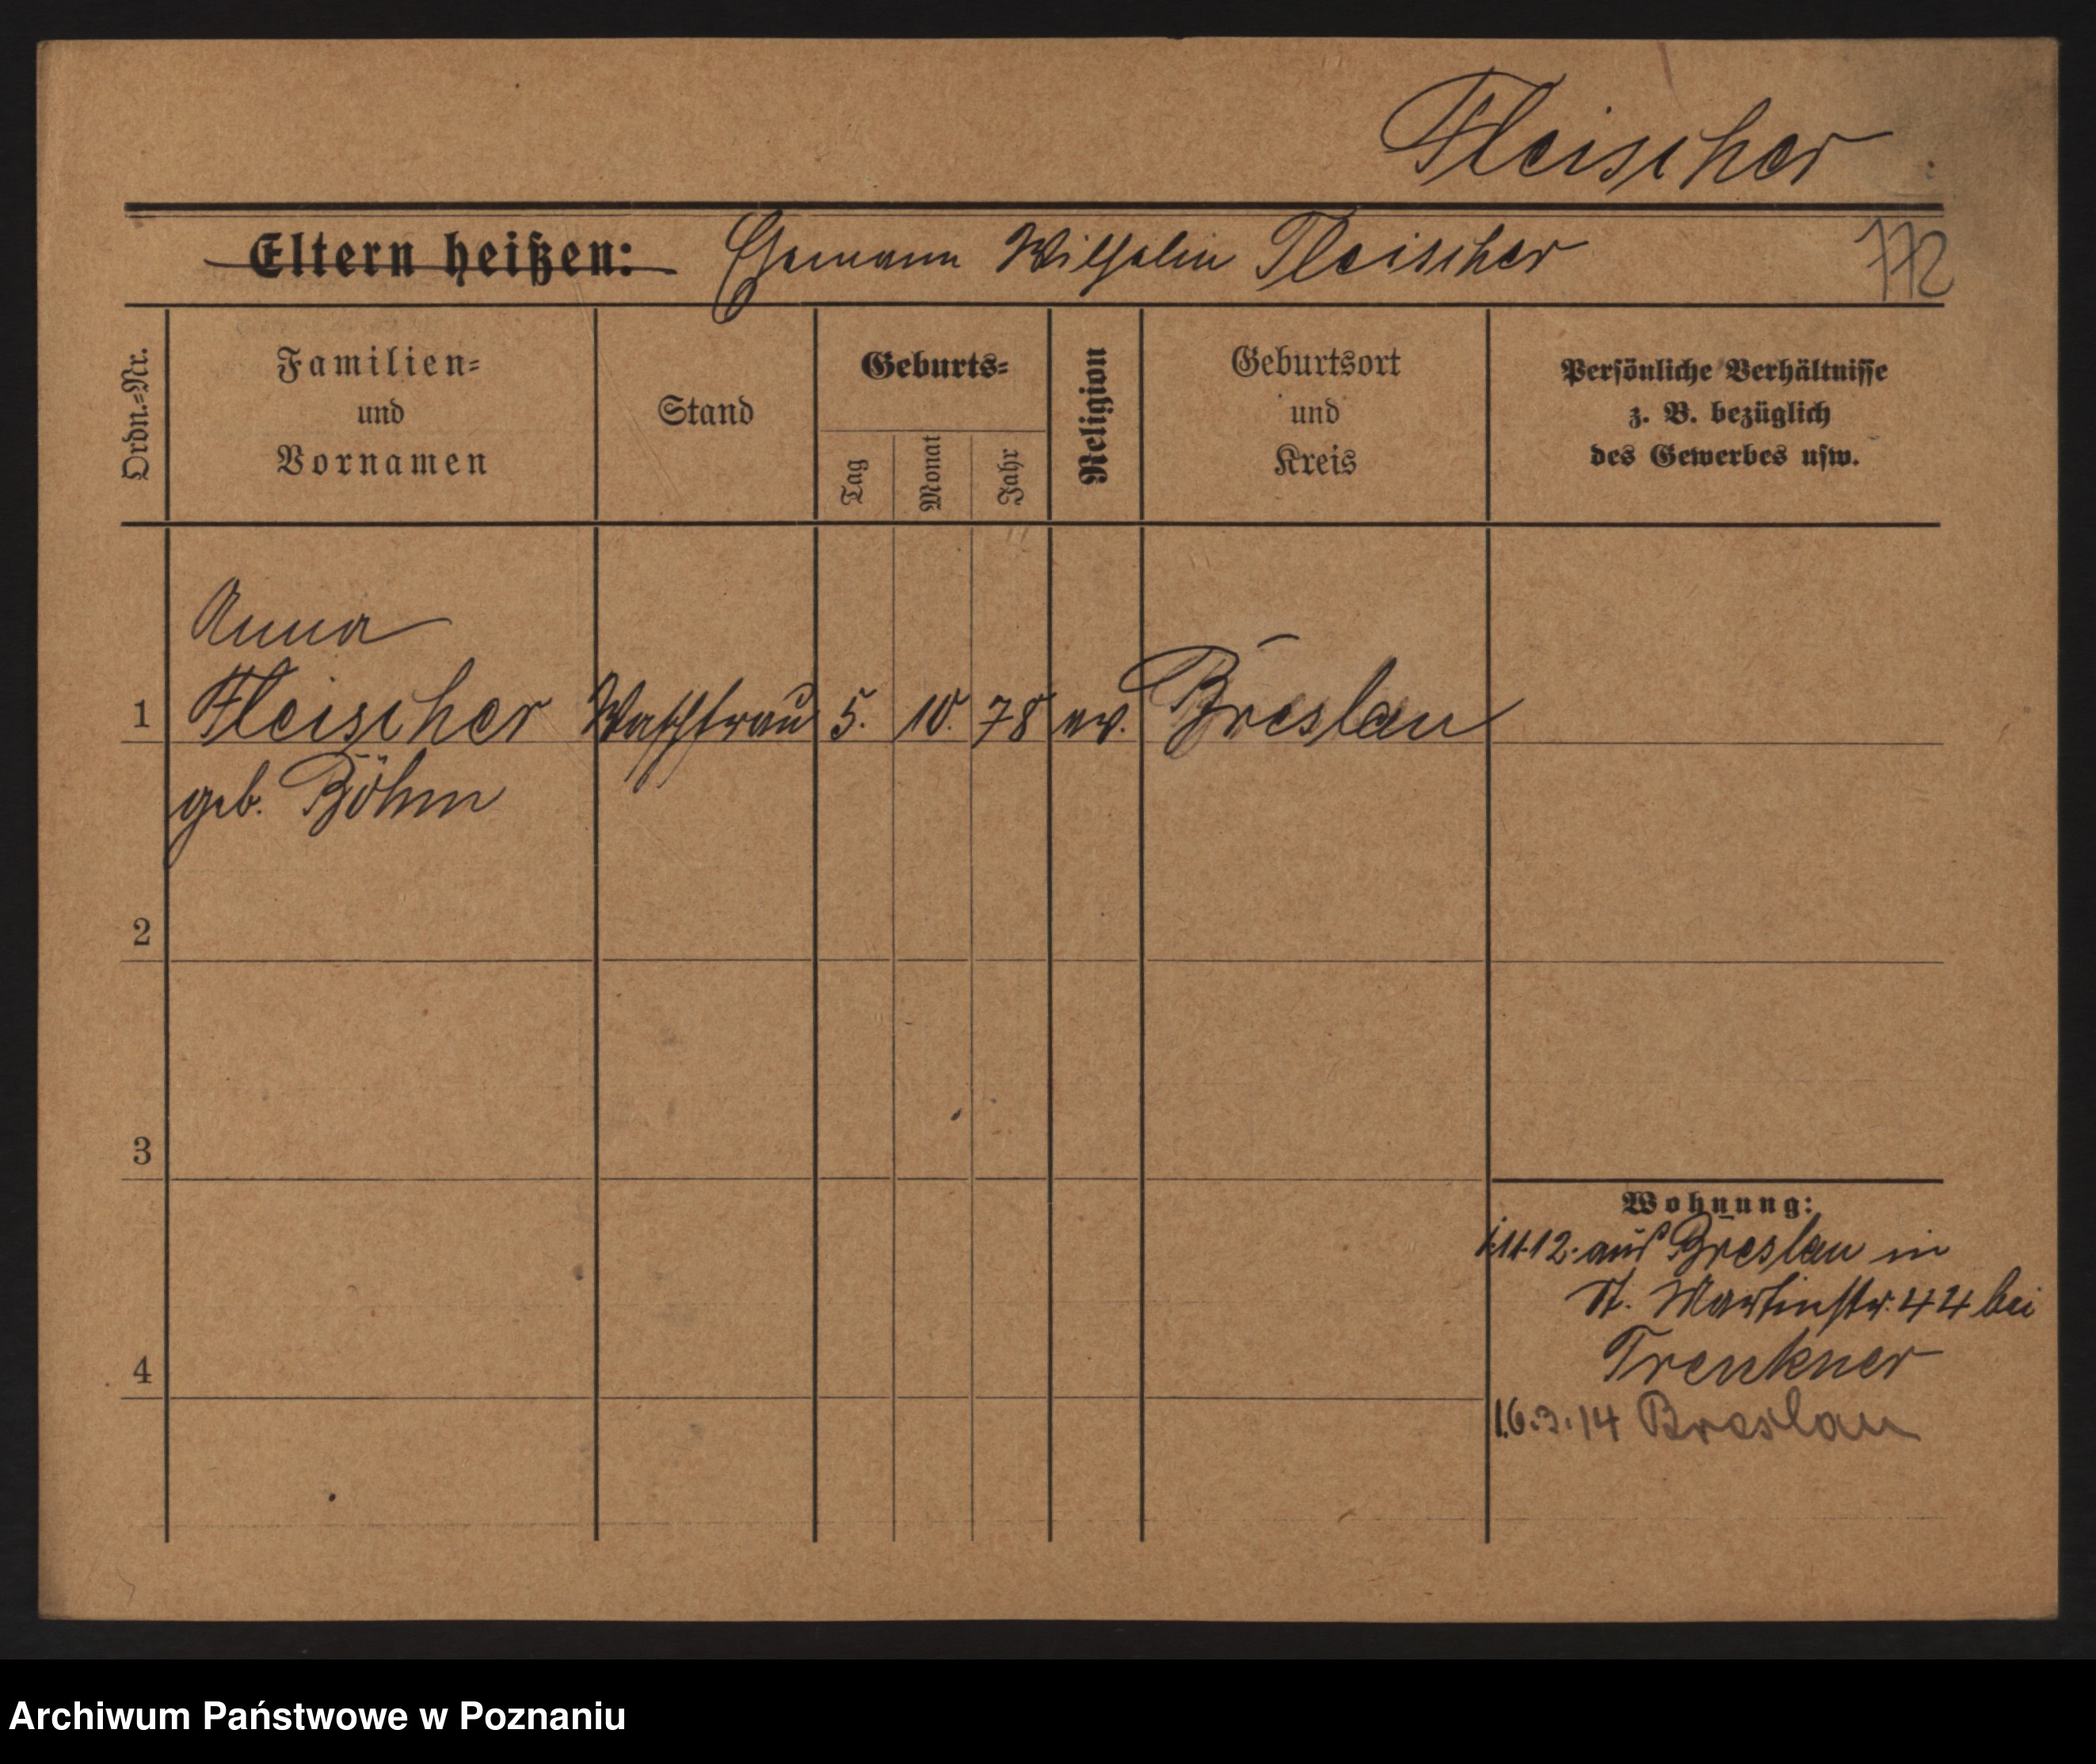 Fleischer
Eltern heißen: Ehemann Wilhelm Fleischer
772
Ordn.-Nr.
Familien-
und
Vornamen
Stand
Geburts-
Tag
Monat
Jahr
Religion
Geburtsort
und
Kreis
Persönliche Verhältnisse
z. B. bezüglich
des Gewerbes usw.
Anna
1 Fleischer Waschfrau 5. 10. 78 ev. Breslau
geb. Böhm
2
3
4
Wohnung:
1.11.12. aus Breslau in
St. Martinstr. 44 bei
Trenkner
16.3.14 Breslau
Archiwum Państwowe w Poznaniu